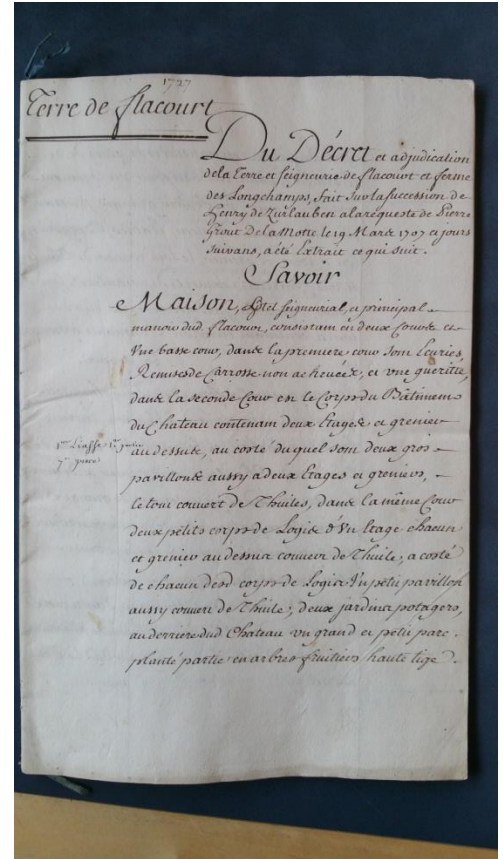 1727
Terre de flacourt
Du Décret et adjudication
de la Terre et seigneurie de flacourt et ferme
des Longchamps, fait sur la succession de
henry de Zurlauben a la requeste de Pierre
Grout De la Motte le 19 Mars 1707 et jours
suivans, a été Extrait ce qui suit.
Savoir
Maison, hôtel seigneurial, et principal
manoir dud flacourt, consistant en deux Cours et
Une basse cour, dans la premiere cour sont Ecuries,
Remises de Carrosse non achevéez, et une gueritte,
dans la seconde Cour est le Corps du Bâtiment
du Chateau contenant deux Etages et grenier
au dessus, au costé du quel sont deux gros
pavillons aussy a deux Etages et greniers,
le tout couvert de Thuiles, dans la même Cour
deux petits corps de Logis d'Un Etage chacun
et grenier au dessus couvert de Thuile, a costé
de chacun desd corps de Logis Un petit pavillon
aussy couvert de Thuile; deux jardins potagers,
au derriere dud Chateau un grand et petit parc
planté partie en arbres fruitiers haute tige
Liasse